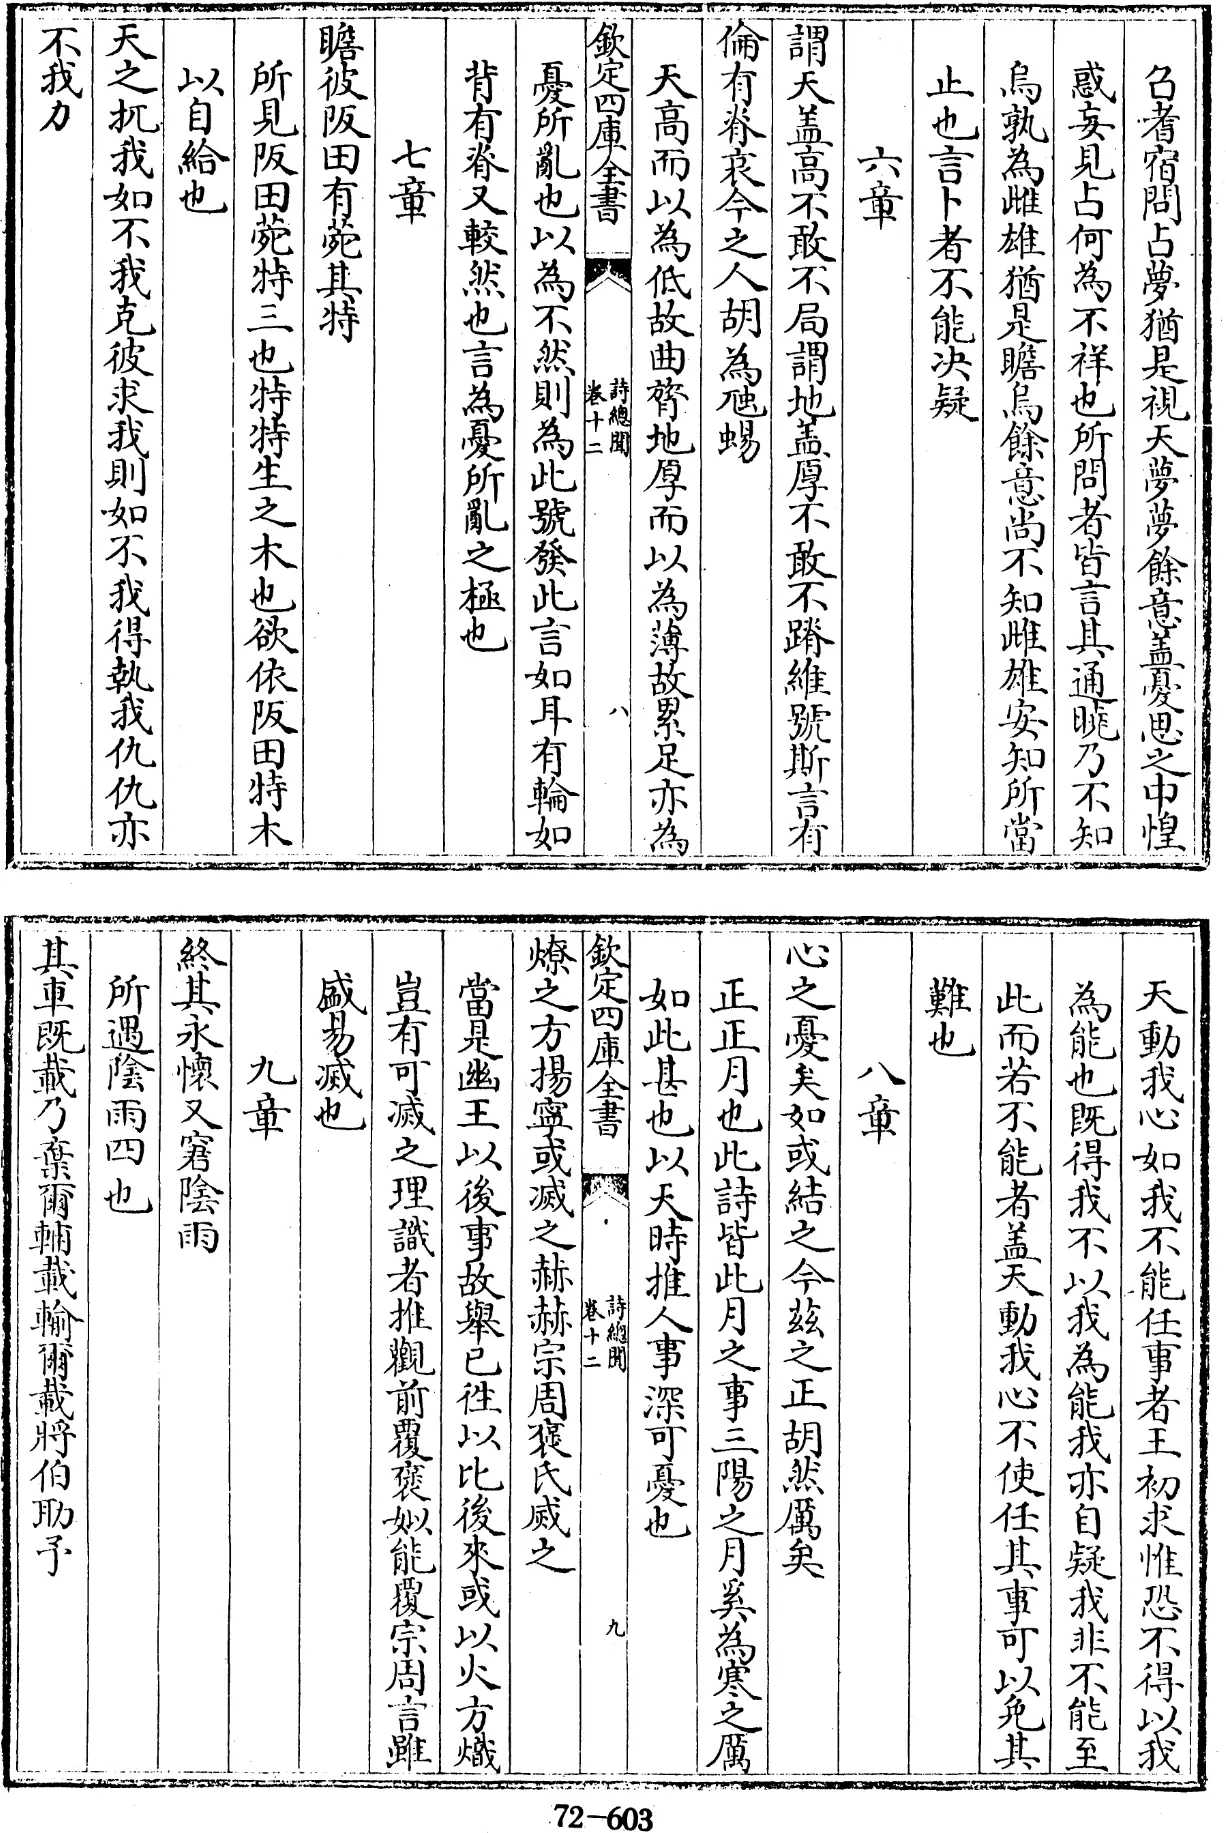 召耆宿問占夢猶是視天夢夢餘意盖憂思之中惶
惑妄見占何為不祥也所問者皆言其通曉乃不知
烏孰為雌雄猶是瞻烏餘意尚不知雌雄安知所當
止也言卜者不能决疑
六章
謂天盖高不敢不局謂地盖厚不敢不蹐維號斯言有
倫有脊哀今之人胡為虺蜴
天高而以為低故曲脊地厚而以為薄故累足亦為
欽定四庫全書
詩總聞
卷十二
八
憂所亂也以為不然則為此號發此言如耳有輪如
背有脊又較然也言為憂所亂之極也
七章
瞻彼阪田有菀其特
所見阪田菀特三也特特生之木也欲依阪田特木
以自給也
天之扤我如不我克彼求我則如不我得執我仇仇亦
不我力
天動我心如我不能任事者王初求惟恐不得以我
為能也既得我不以我為能我亦自疑我非不能至
此而若不能者盖天動我心不使任其事可以免其
難也
八章
心之憂矣如或結之今兹之正胡然厲矣
正正月也此詩皆此月之事三陽之月奚為寒之厲
如此甚也以天時推人事深可憂也
欽定四庫全書
詩總聞
卷十二
九
燎之方揚寧或滅之赫赫宗周褒氏烕之
當是幽王以後事故舉已徃以比後來或以火方熾
豈有可滅之理識者推觀前覆褒姒能覆宗周言雖
盛易滅也
九章
終其永懷又窘陰雨
所遇陰雨四也
其車既載乃棄爾輔載輸爾載將伯助予
72-603